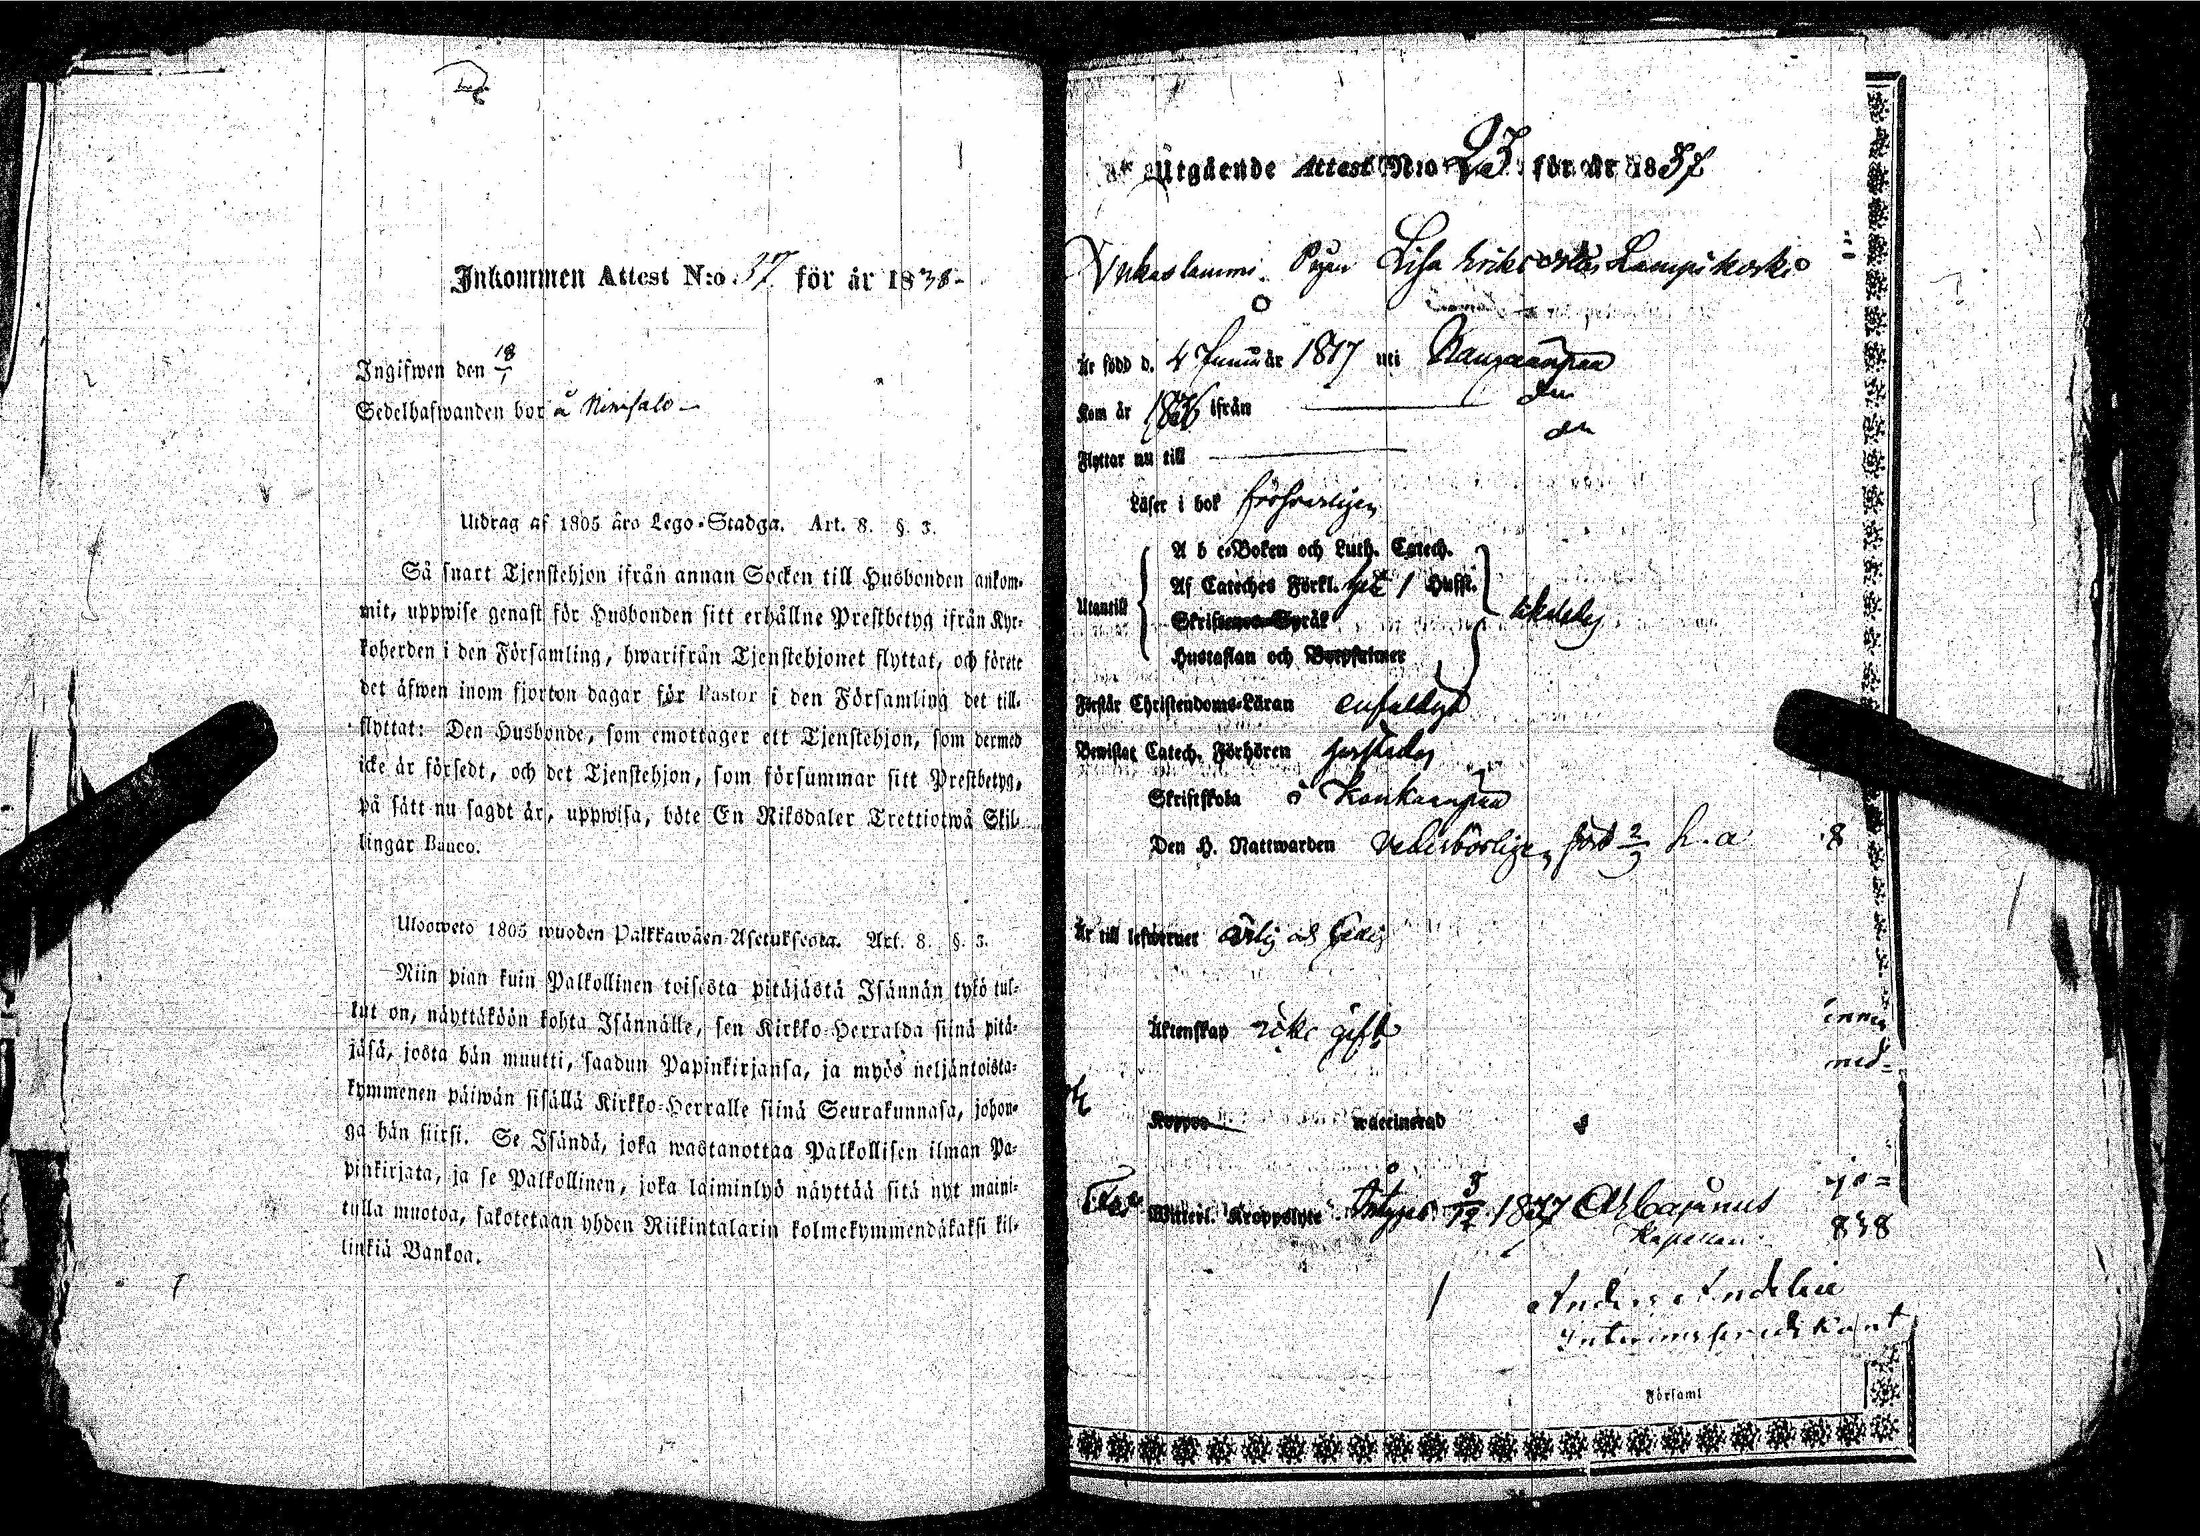 Inkommen Attest N:o 37 för år 1838-
Ingifwen den 18/1
Sedelhafwanden bor å Niinisalo-
Utdrag af 1805 års Lego-Stadga. Art. 8. §. 3.
Så snart Tjenstehjon ifrån annan Socken till Husbonden ankom-
mit, uppwise genast för Husbonden sitt erhållne Prestbetyg ifrån Kyr-
koherden i den Församling, hwarifrån Tjenstehjonet flyttat, och förete
det äfwen inom fjorton dagar för Pastor i den Församling det till-
flyttat: Den Husbonde, som emottager ett Tjenstehjon, som dermed
icke är försedt, och det Tjenstehjon, som försummar sitt Prestbetyg,
på sätt nu sagdt är, uppwisa, böte En Riksdaler Trettiotwå Skil-
lingar Banco.
Ulosweto 1805 wuoden Palkkawäen-Asetuksesta. Art. 8. §. 3.
Niin pian kuin Palkollinen toisesta pitäjästä Isännän tykö tul-
lut on, näyttäköön kohta Isännälle, sen Kirkko-Herralda siinä pitä-
jäsä, josta hän muutti, saadun Papinkirjansa, ja myös neljäntoista-
kymmenen päiwän sisällä Kirkko-Herralle siinä Seurakunnasa, johon-
ga hän siirsi. Se Isändä, joka wastanottaa Palkollisen ilman Pa-
pinkirjata, ja se Palkollinen, joka laiminlyö näyttää sitä nyt maini-
tulla muotoa, sakotetaan yhden Riikintalarin kolmekymmendäkaksi kil-
linkiä Bankoa.
Utgående Attest N:o 23 för år 1837
Pigan Lisa Eriksdotter Lampikoski
Är född d. 4 Januär 1817 uti Kangaanpää
Kom år ifrån
den
den
Flyttar nu till
Läser i bok försvarligen
A b c-Boken och Luth. Catech.
Af Cateches Förkl. 1 Hufst.
Utantill
Skriftenes Språk
likaledes
Hustaflan och Botpsalmer
Förstår Christendoms-Läran enfaldigt
Bewistat Catech. Förhören
Skriftskola å Kankaanpää
Den H. Nattwarden vederbörligen, sist 2/7 h. a 8
Är till lefwernet ärlig och sedig
Äktenskap icke gift
Koppor waccinerad
Witterl. Kroppslyte 3/12 1837 Cajanus
Kapellan
838
Anders Andelin
Interimspredikant
Församl